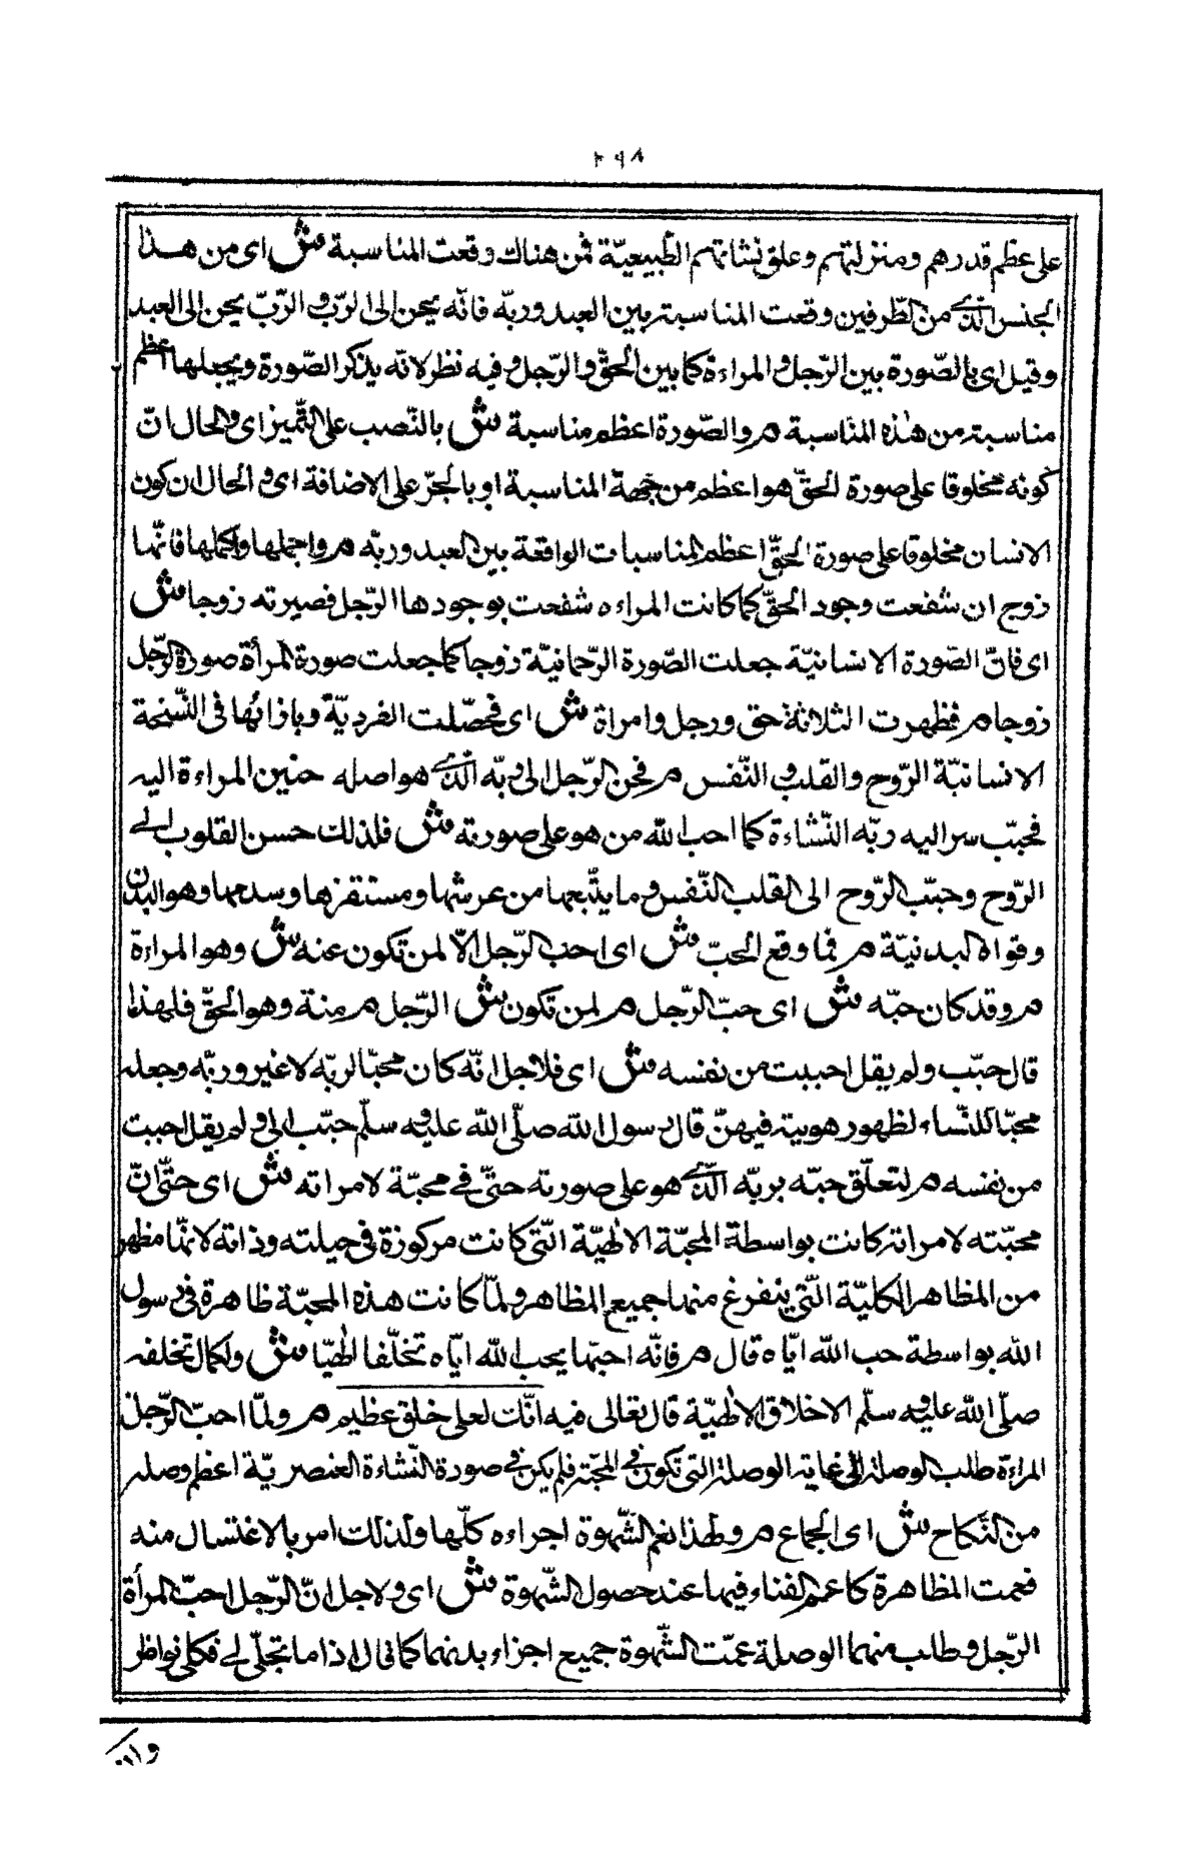 ٢٩٨
على عظم قدرهم ومنزلتهم وعلوّ نشاتهم الطّبيعيّة فمن هناك وقعت المناسبة ش اى من هذا
الجنس الّذى من الطّرفين وقعت المناسبة بين العبد وربّه فانّه يحنّ الى الرّبّ والرّبّ يحنّ الى العبد
وقيل اى بالصّورة بين الرّجل والمراءة كما بين الحقّ والرّجل وفيه نظر لانّه يذكر الصّورة ويجعلها اعظم
مناسبة من هذه المناسبة م والصّورة اعظم مناسبة ش بالنّصب على التّميز اى والحال انّ
كونه مخلوقا على صورة الحقّ هو اعظم من جهة المناسبة او بالجرّ على الاضافة اى والحال ان كون
الانسان مخلوقا على صورة الحقّ اعظم المناسبات الواقعة بين العبد وربّه م واجملها واكملها فانّها
زوج ان شفعت وجود الحقّ كما كانت المراءه شفعت بوجودها الرّجل فصيرته زوجا ش
اى فانّ الصّورة الانسانيّة جعلت الصّورة الرّحمانيّة زوجا كما جعلت صورة المرأة صورة الرّجل
زوجا م فظهرت الثلاثة حق ورجل وامراة ش اى فحصّلت الفرديّة وبازائها فى النّسخة
الانسانيّة الرّوح والقلب والنّفس م فحنّ الرّجل الى ربّه الّذى هو اصله حنين المراءة اليه
فحبّب سر اليه ربّه النّشاءة كما احب الله من هو على صورته ش فلذلك حسن القلوب الى
الرّوح وحبّب الرّوح الى القلب النّفس وما يتّبعها من عرشها ومستقرها وسدها وهو البدن
وقواه البدنيّة م فما وقع الحبّ ش اى احب الرّجل الّا لمن تكون عنه ش وهو المراءة
م وقد كان حبّه ش اى حبّ الرّجل م لمن تكون ش الرّجل م منة وهو الحقّ فلهذا
قال حبّب ولم يقل احببت من نفسه ش اى فلاجل انّه كان محبّا لربّه لا غير وربّه وجعله
محبّا للنّساء لظهور هويته فيهنّ قال رسول الله صلّى الله عليه وسلّم حبّب الى ولم يقل احببت
من نفسه م لتعلّق حبّه بربّه الّذى هو على صورته حتّى فى محبّة لامراته ش اى حتّى انّ
محبّته لامراته كانت بواسطة المحبّة الالهيّة الّتى كانت مركوزة فى جبلته وذاته لانّها مظهر
من المظاهر الكليّة الّتى يتفرغ منها جميع المظاهر ولمّا كانت هذه المحبّة ظاهرة فى رسول
الله بواسطة حب الله ايّاه قال م فانّه احبّها يحب الله ايّاه تخلّقا الهيّا ش ولكمال تخلقه
صلّى الله عليه وسلّم الاخلاق الالهيّة قال تعالى فيه انّك لعلى خلق عظيم م ولمّا احبّ الرّجل
المراءة طلب الوصلة الى غاية الوصلة التى تكون فى المحبّة فلم يكن فى صورة النّشاءة العنصريّة اعظم وصلة
من النّكاح ش اى الجماع م ولهذا نعم الشّهوة اجزاءه كلّها ولذلك امر بالاغتسال منه
فعمت المظاهرة كما عم الفناء فيها عند حصول الشّهوة ش اى ولاجل انّ الرّجل احبّ المرأة
الرّجل وطلب منهما الوصلة عمّت الشّهوة جميع اجزاء بدنهما كما قال اذا ما تجلّى لى فكلى نواظر